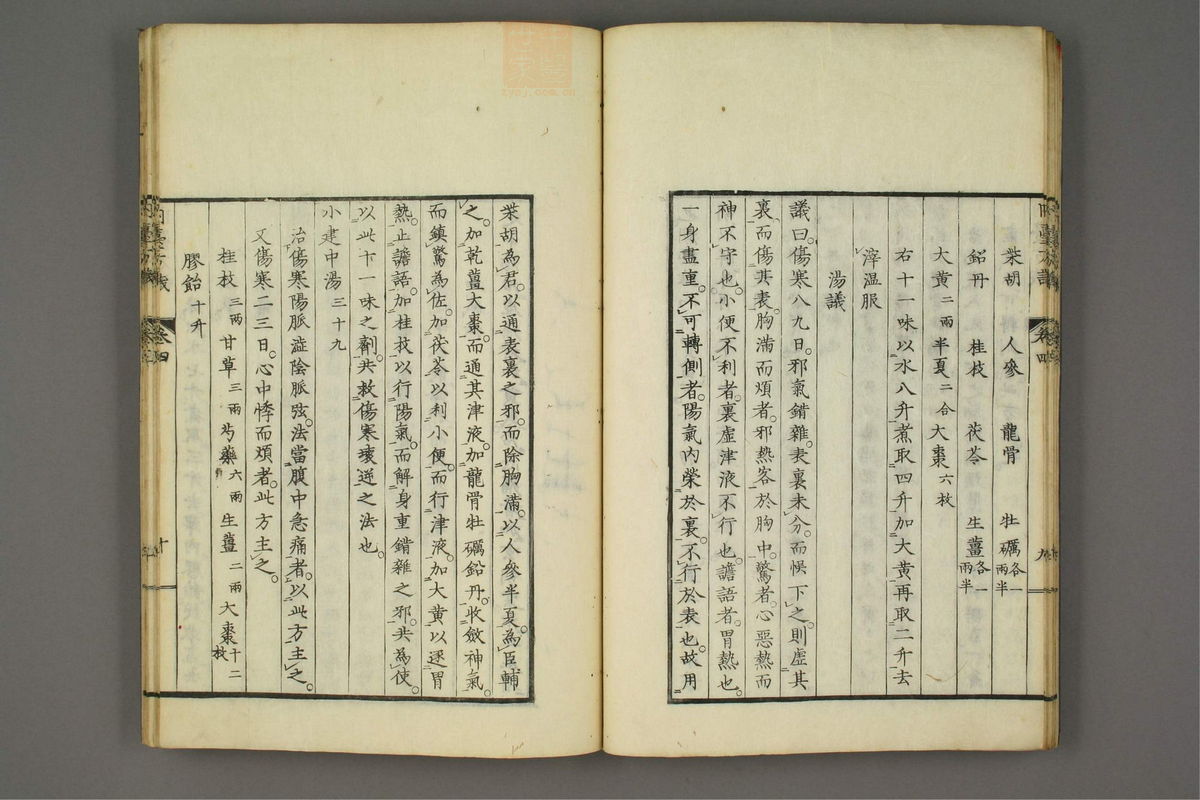 柴胡 人參 龍骨 牡礪各一兩半
鉛丹 桂枝 茯苓 生薑各一兩半
大黃二兩 半夏二合 大棗六枚
右十一味以水八升煮取四升加大黃再取二升去
滓温服
湯議
議曰傷寒八九日邪氣錯雜表裏未分而悞下之則虛其
裏而傷其表胸滿而煩者邪熱客於胸中驚者心惡熱而
神不守也小便不利者裏虛津液不行也譫語者胃熱也
一身盡重不可轉側者陽氣內榮於裏不行於表也故用
柴胡為君以通表裏之邪而除胸滿以人參半夏為臣輔
之加乾薑大棗而通其津液加龍骨牡礪鉛丹收斂神氣
而鎮驚為佐加茯苓以利小便而行津液加大黃以逐胃
熱止譫語加桂枝以行陽氣而解身重錯雜之邪共為使
以此十一味之劑共救傷寒壞逆之法也
小建中湯三十九
治傷寒陽脈澁陰脈弦法當腹中急痛者以此方主之
又傷寒二三日心中悸而煩者此方主之
桂枝三兩 甘草三兩 芍藥六兩 生薑二兩 大棗十二枚
膠飴十升
卷四